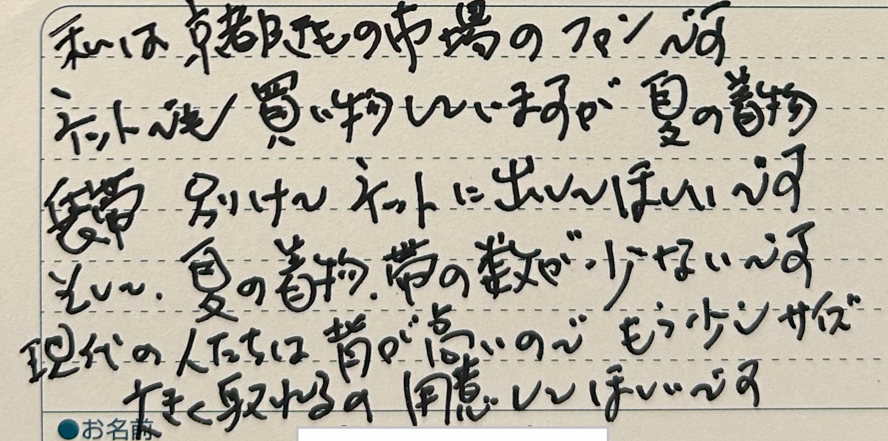 私は京都きもの市場のファンです
ネットでも買い物していますが夏の着物
袋帯 別けて ネットに出してほしいです
そして、夏の着物、帯の数が少ないです
現代の人たちは背が高いので もう少しサイズ
大きく取れるの 用意してほしいです
●お名前